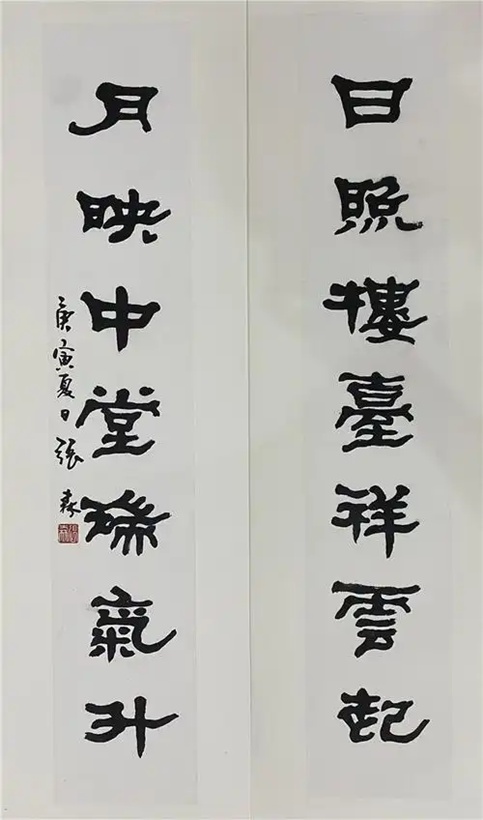 日照樓臺祥雲起
月映中堂瑞氣升
庚寅夏日張森